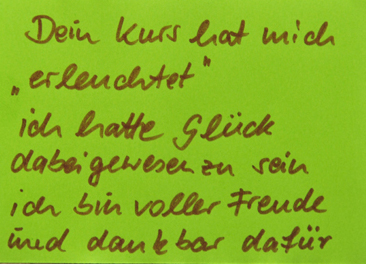 Dein Kurs hat mich
„erleuchtet"
ich hatte Glück
dabeigewesen zu sein
ich bin voller Freude
und dankbar dafür